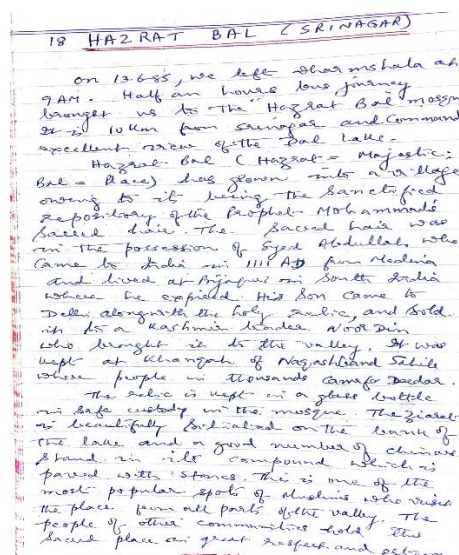 18 HAZRAT BAL (SRINAGAR)
On 13.6.85, we left Dharmshala at
9 AM. Half an hours bus journey
brought us to the "Hazrat Bal mosque
It is 10 Km from Srinagar and Command
excellent view of the Dal Lake.
Hazrat Bal (Hazrat = Majestic;
Bal = Place) has grown into a village
owing to its being the Sanctified
repository of the Prophet Mohammad's
Sacred hair. The Sacred hair was
in the possession of Syed Abdullah who
Came to India in 1111 AD from Medina
and lived at Bijapur in South India
where he expired. His Son Came to
Delhi along with the holy relic, and Sold
it to a Kashmir trader Noor Din
who brought it to the valley. It was
kept at Khangah of Naqashband Sahib
where people in thousands came for Deedar.
The relic is kept in a glass bottle
in safe custody in the mosque. The Ziarat
is beautifully Situated on the bank of
the lake and a good number of chinars
Stand in its compound which is
paved with Stones. This is one of the
most popular spots of Muslims who visit
the place from all parts of the valley. The
people of other communities hold this
Sacred place in great respect and esteem